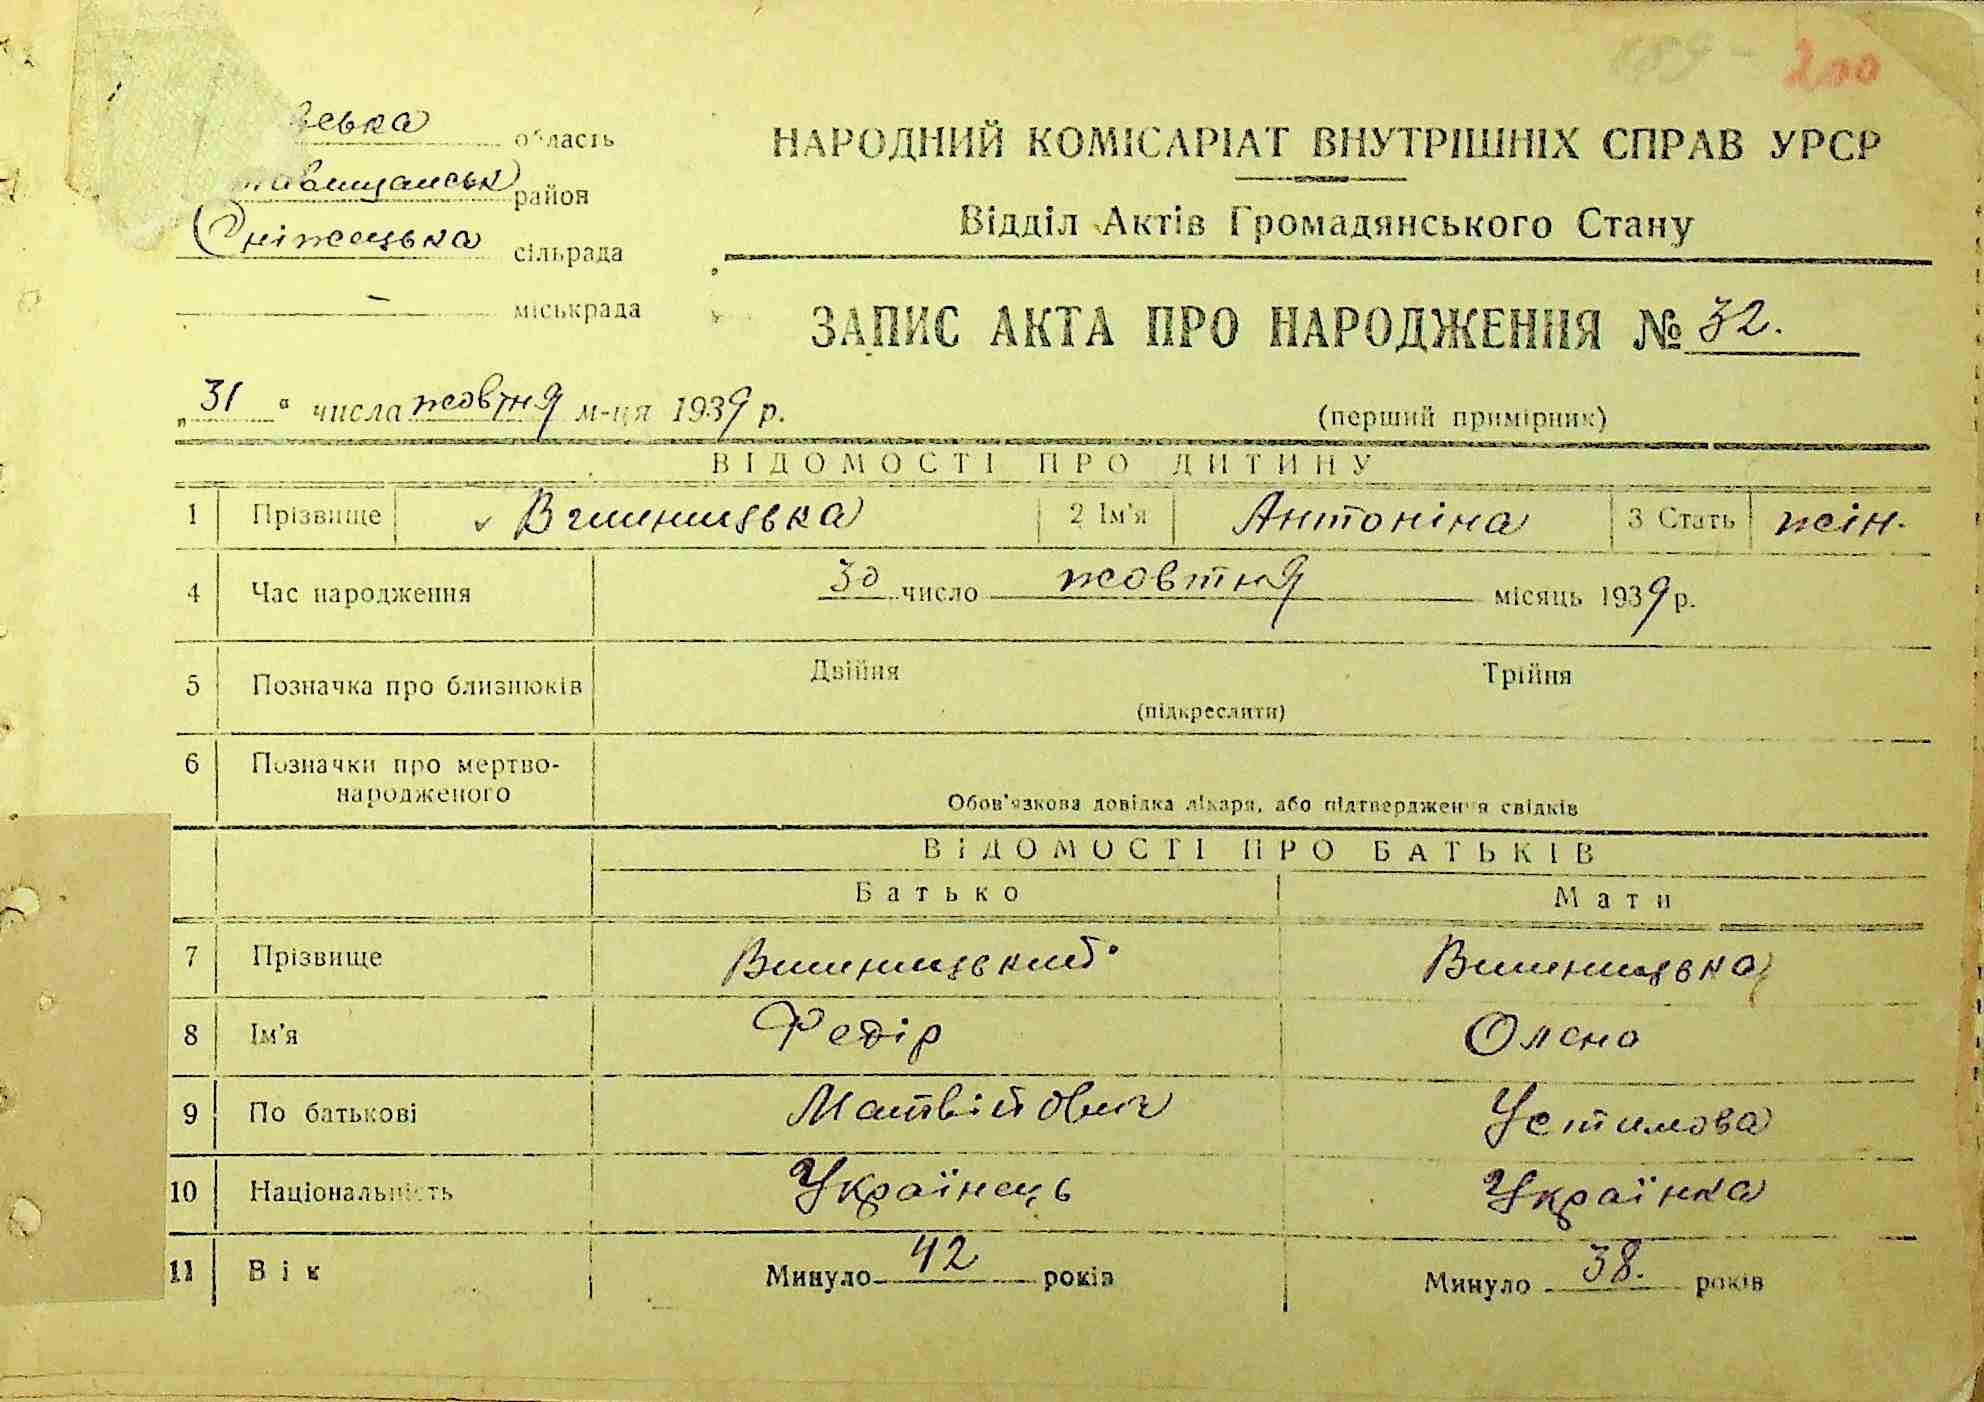 200
ська область
НАРОДНИЙ КОМІСАРІАТ ВНУТРІШНІХ СПРАВ УРСР
тавищанськ район
Відділ Актів Громадянського Стану
Сніжецька сільрада
— міськрада
ЗАПИС АКТА ПРО НАРОДЖЕННЯ № 32.
„31“ числа жовтня м-ця 1939 р.
(перший примірник)
ВІДОМОСТІ ПРО ДИТИНУ
1 Прізвище Вишницька 2 Ім'я Антоніна 3 Стать жін.
4 Час народження 30 число жовтня місяць 1939 р.
5 Позначка про близнюків Двійня Трійня
(підкреслити)
6 Позначки про мертво-
народженого
Обов'язкова довідка лікаря, або підтвердження свідків
ВІДОМОСТІ ПРО БАТЬКІВ
Батько Мати
7 Прізвище Вишницький Вишницька
8 Ім'я Федір Олена
9 По батькові Матвійович Устимова
10 Національність Українець Українка
11 Вік Минуло 42 років Минуло 38. років